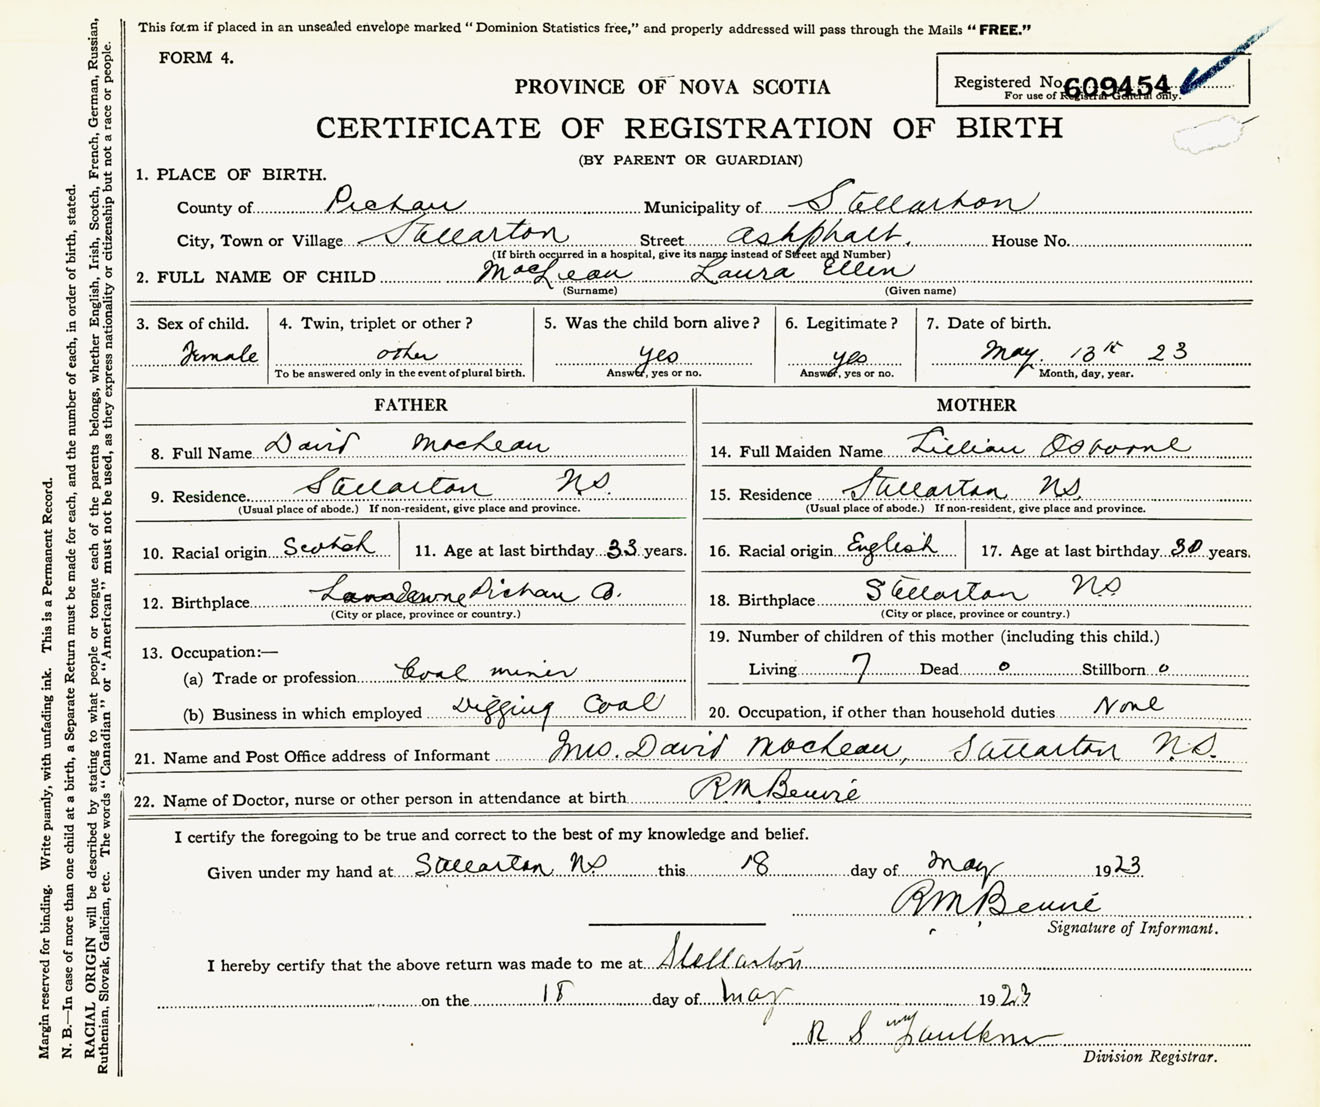 This form if placed in an unsealed envelope marked "Dominion Statistics free," and properly addressed will pass through the Mails "FREE."
FORM 4.
Registered No. 609454
For use of Registrar General only.
PROVINCE OF NOVA SCOTIA
CERTIFICATE OF REGISTRATION OF BIRTH
(BY PARENT OR GUARDIAN)
1. PLACE OF BIRTH.
County of Pictou Municipality of Stellarton
City, Town or Village Stellarton Street Ashphalt. House No.
(If birth occurred in a hospital, give its name instead of Street and Number)
2. FULL NAME OF CHILD MacLean Laura Ellen
(Surname) (Given name)
3. Sex of child. 4. Twin, triplet or other? 5. Was the child born alive? 6. Legitimate? 7. Date of birth.
Female other yes yes May. 13th 23
To be answered only in the event of plural birth. Answer, yes or no. Answer, yes or no. Month, day, year.
FATHER MOTHER
8. Full Name David MacLean 14. Full Maiden Name Lillian Osborne
9. Residence Stellarton N.S. 15. Residence Stellarton N.S.
(Usual place of abode.) If non-resident, give place and province. (Usual place of abode.) If non-resident, give province and province.
10. Racial origin Scotch 11. Age at last birthday 33 years. 16. Racial origin English 17. Age at last birthday 30 years.
12. Birthplace Lansdowne Pictou Co. 18. Birthplace Stellarton N.S.
(City or place, province or country.) (City or place, province or country.)
19. Number of children of this mother (including this child.)
13. Occupation:—
(a) Trade or profession Coal miner Living 7 Dead 0 Stillborn 0
(b) Business in which employed Digging Coal 20. Occupation, if other than household duties None
21. Name and Post Office address of Informant Mrs. David MacLean, Stellarton N.S.
22. Name of Doctor, nurse or other person in attendance at birth R.M. Benvie
I certify the foregoing to be true and correct to the best of my knowledge and belief.
Given under my hand at Stellarton N.S this 18 day of May 1923
R M Benvie
Signature of Informant.
I hereby certify that the above return was made to me at Stellarton
on the 18 day of May 1923
R S Faulkner
Division Registrar.
Margin reserved for binding. Write plainly, with unfading ink. This is a Permanent Record.
N. B.—In case of more than one child at a birth, a Separate Return must be made for each, and the number of each, in order of birth, stated.
RACIAL ORIGIN will be described by stating to what people or tongue each of the parents belongs, whether English, Irish, Scotch, French, German, Russian,
Ruthenian, Slovak, Galician, etc. The words "Canadian" or "American" must not be used, as they express nationality or citizenship but not a race or people.